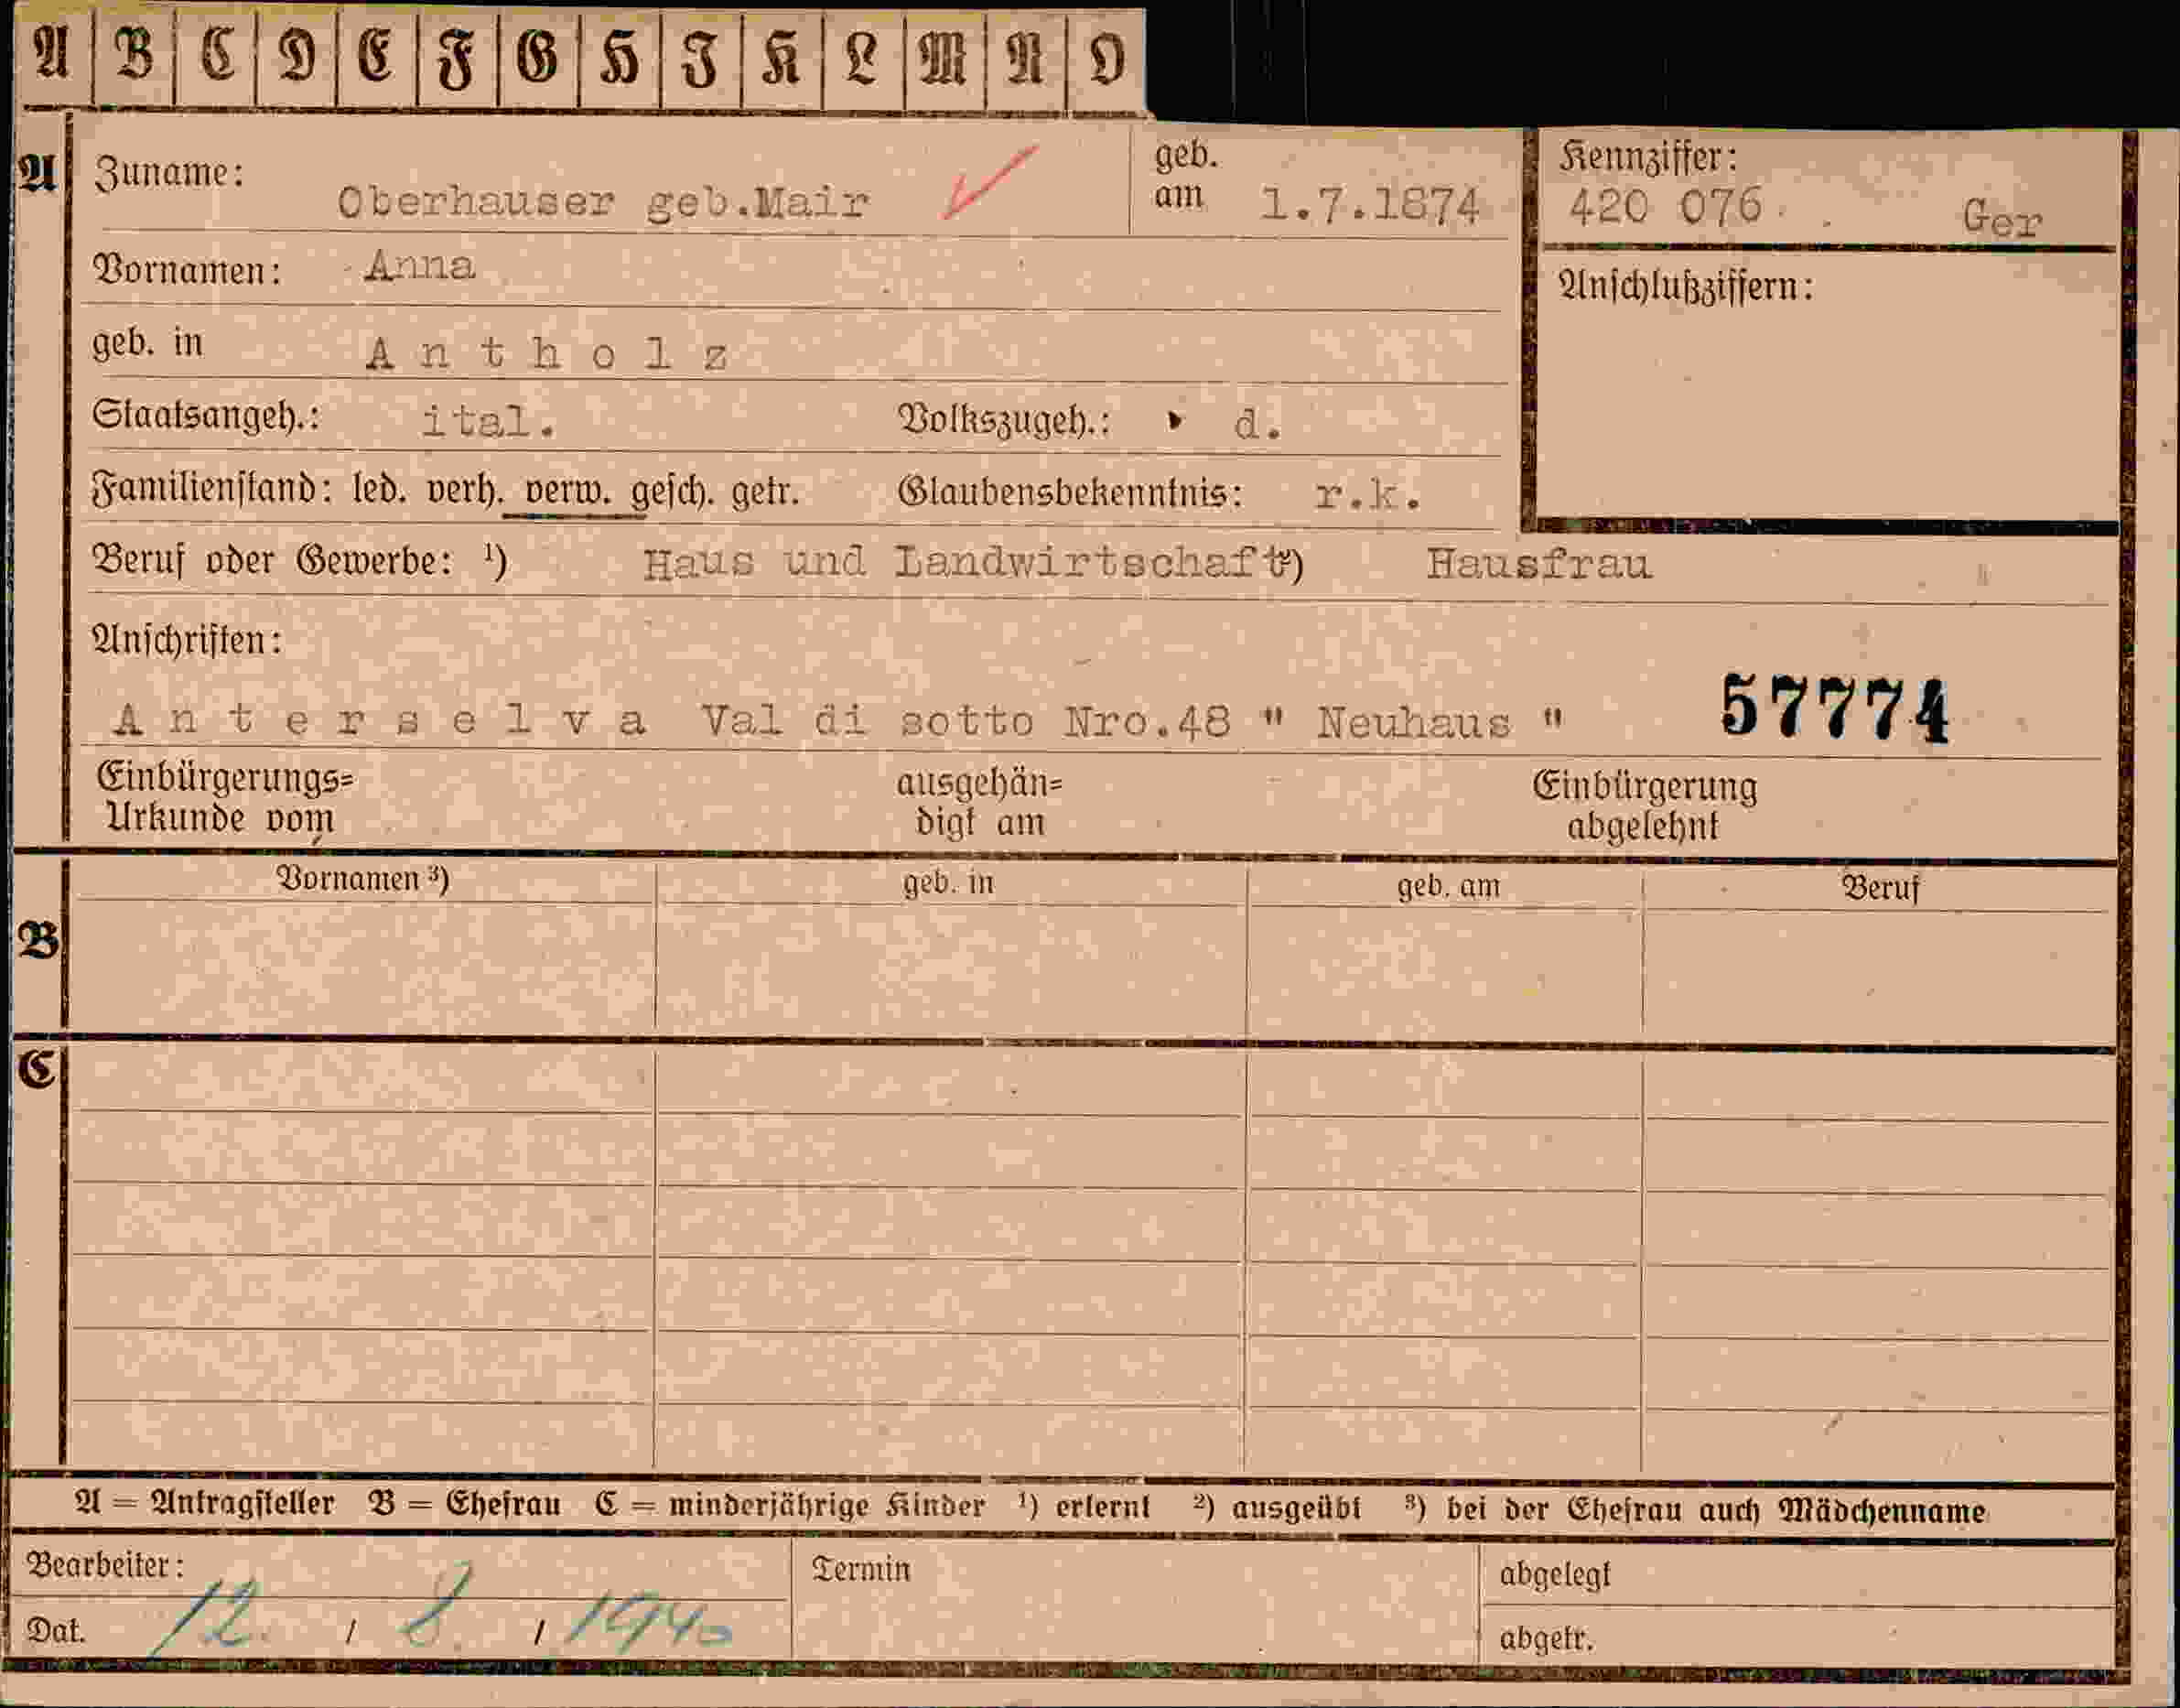 A B C D E F G H J K L M N O
A Zuname: Oberhauser geb.Mair geb. am 1.7.1874
Kennziffer: 420 076. Ger
Vornamen: Anna
Anschlußziffern:
geb. in Antholz
Staatsangeh.: ital. Volkszugeh.: d.
Familienstand: led. verh. verw. gesch. getr. Glaubensbekenntnis: r.k.
Beruf oder Gewerbe: ¹) Haus und Landwirtschaft ²) Hausfrau
Anschriften:
Anterselva Val di sotto Nro.48 " Neuhaus " 57774
Einbürgerungs= Urkunde vom ausgehän= digt am Einbürgerung abgelehnt
Vornamen ³) geb. in geb. am Beruf
B
C
A = Antragsteller B = Ehefrau C = minderjährige Kinder ¹) erlernt ²) ausgeübt ³) bei der Ehefrau auch Mädchenname
Bearbeiter: Termin abgelegt
Dat. 12. / 8. / 1940 abgetr.